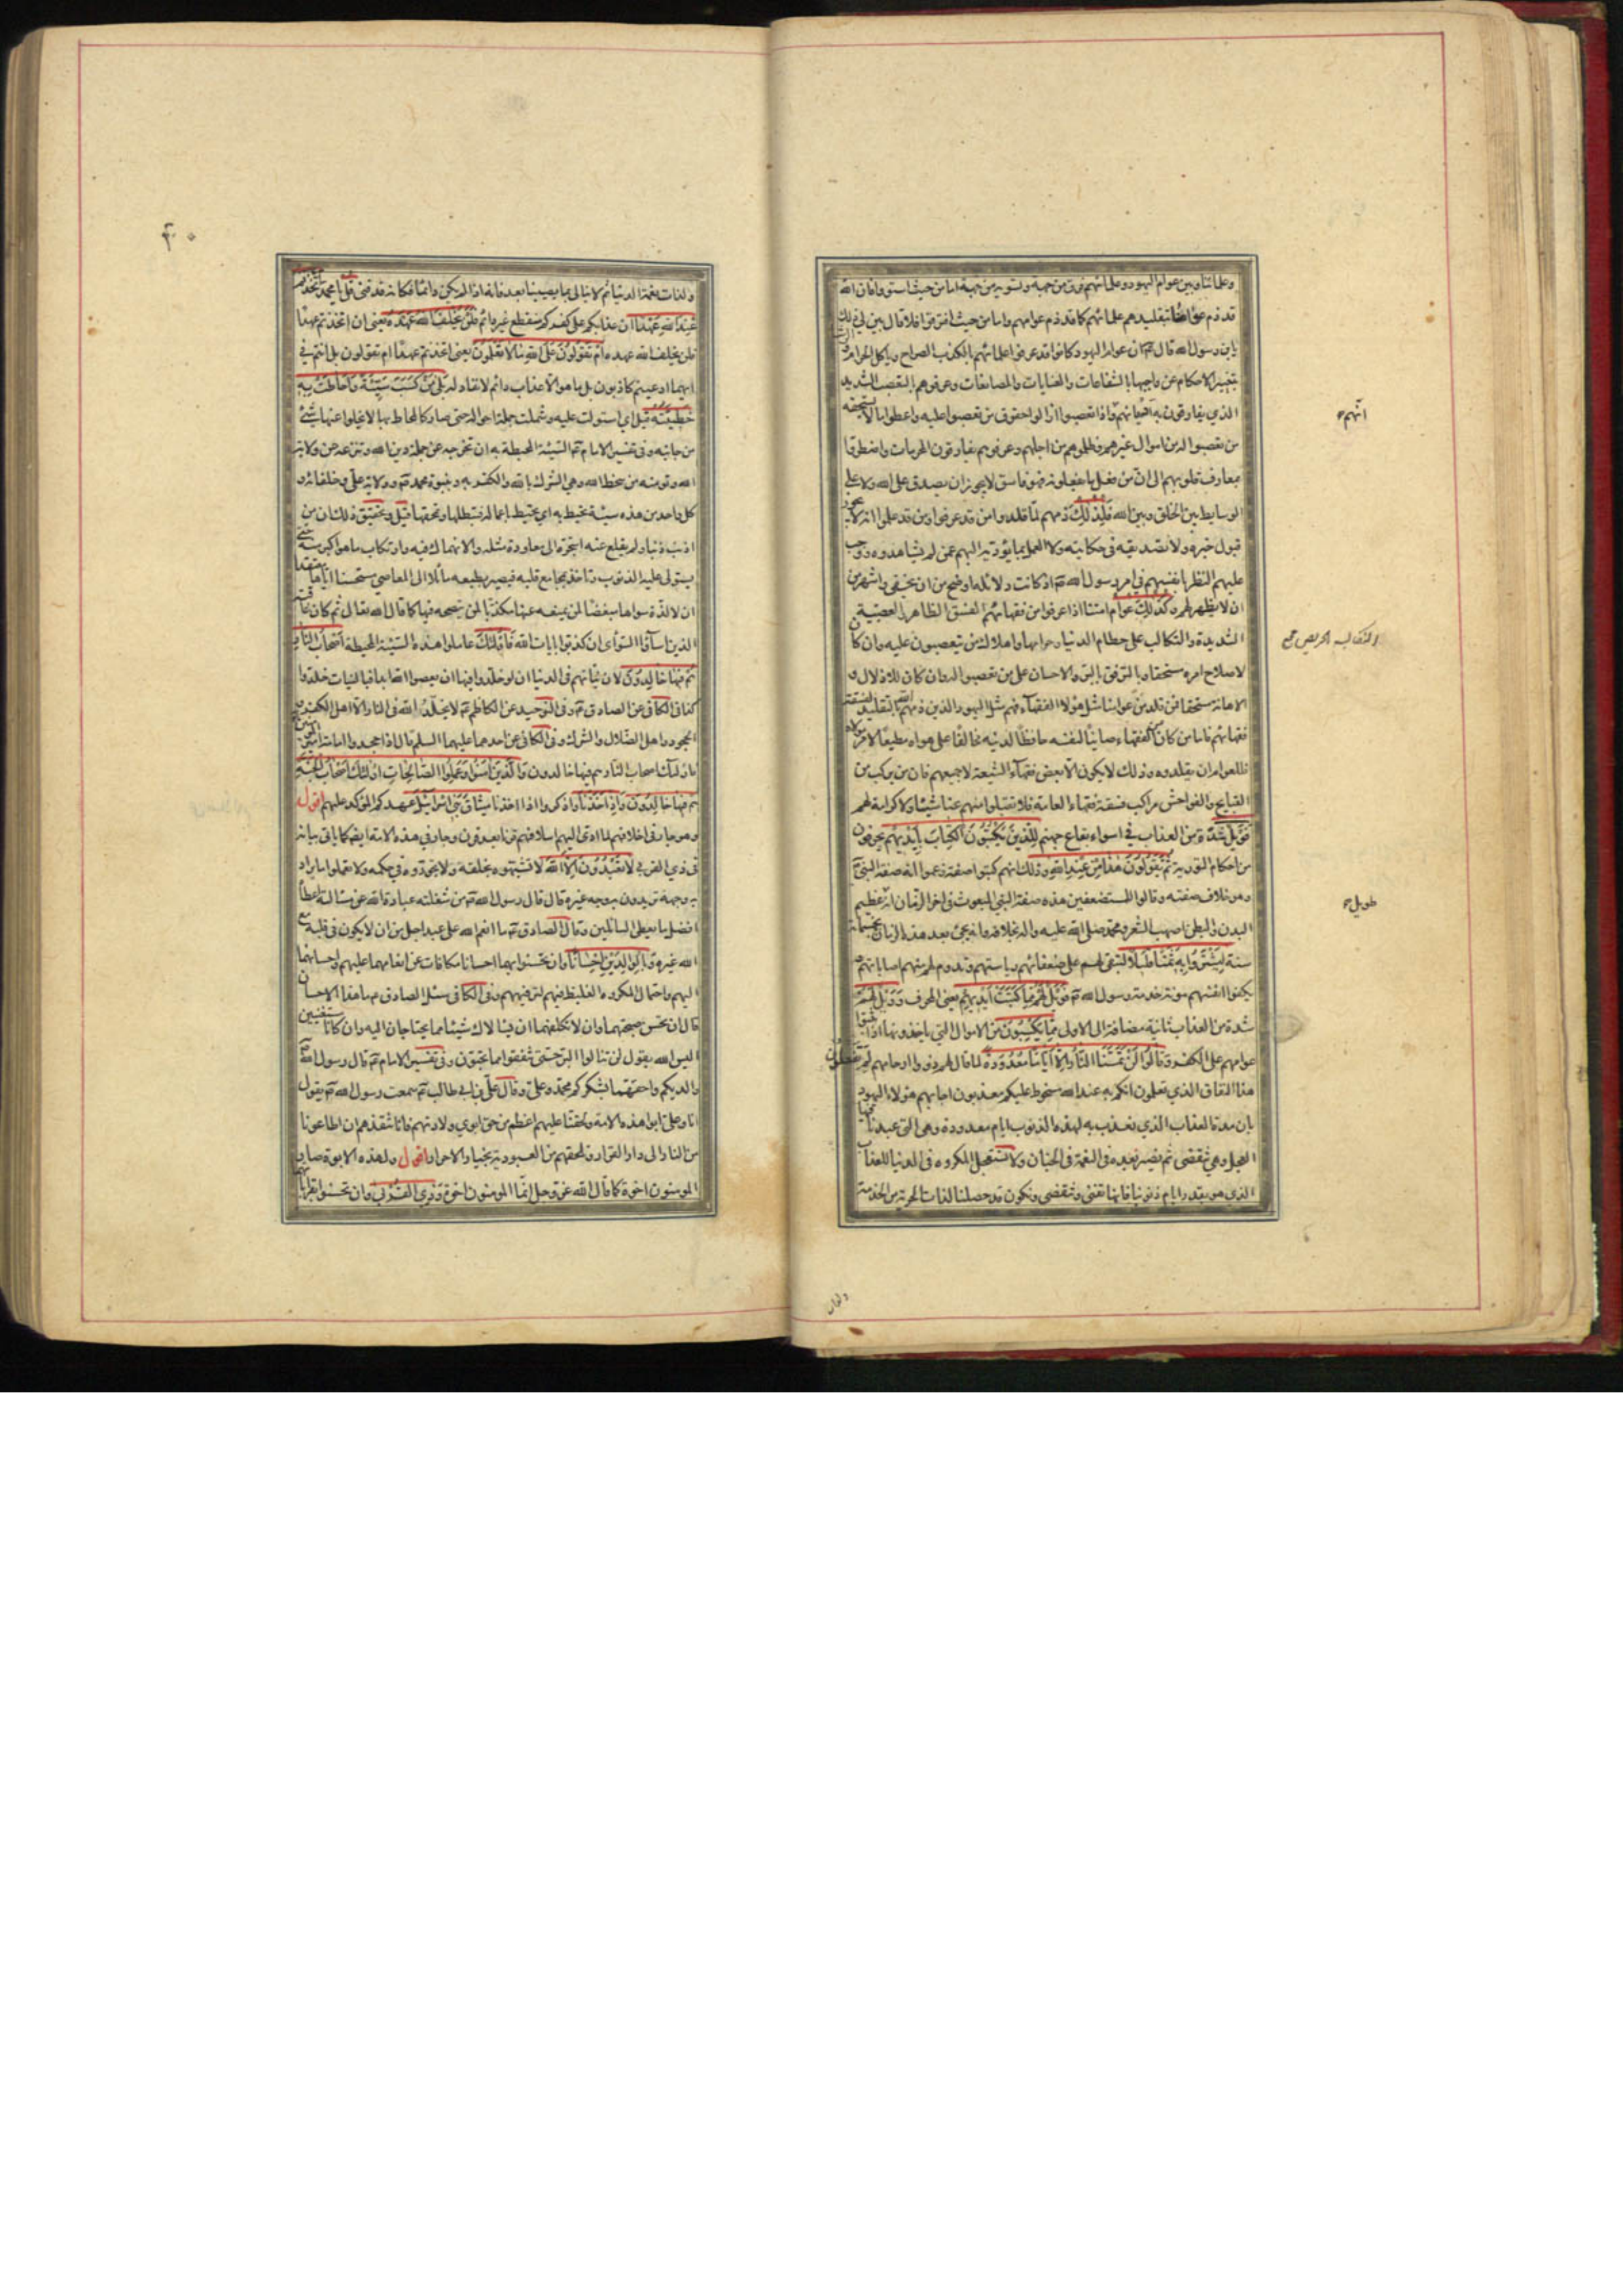 وعلمائنا وبين عوام اليهود وعلمائهم فرق من جهة وتسوية من جهة اما من حيث استووا فان الله
قد ذم عوامنا بتقليدهم علمائهم كما قد ذم عوامهم واما من حيث افترقوا فلا قال بين لي ذلك
يابن رسول الله قال ع ان عوام اليهود كانوا قد عرفوا علمائهم بالكذب الصراح وباكل الحرام والرشا
بتغيير الاحكام عن واجبها بالشفاعات والعنايات والمصانعات وعرفوهم بالتعصب الشديد
الذي يفارقون به اديانهم واذا تعصبوا ازالوا حقوق من تعصبوا عليه واعطوا ما لا يستحقه
من تعصبوا له من اموال غيرهم وظلموهم من اجلهم وعرفوهم يقارفون المحرمات واضطروا
بمعارف قلوبهم الى ان من فعل ما يفعلونه فهو فاسق لا يجوز ان يصدق على الله ولا على
الوسايط بين الخلق وبين الله فلذلك ذمهم لما قلدوا من قد عرفوا ومن قد علموا انه لا يجوز
قبول خبره ولا تصديقه في حكايته ولا العمل بما يؤديه اليهم عمن لم يشاهدوه ووجب
عليهم النظر بانفسهم في امر رسول الله ص اذ كانت دلائله اوضح من ان تخفى واشهر من
ان لا يظهر لهم وكذلك عوام امتنا اذا عرفوا من فقهائهم الفسق الظاهر والعصبية
الشديدة والتكالب على حطام الدنيا وحرامها واهلاك من يتعصبون عليه وان كان
لاصلاح امره مستحقا وبالترفق بالبر والاحسان على من تعصبوا له وان كان للاذلال و
الاهانة مستحقا فمن قلد من عوامنا مثل هؤلاء الفقهاء فهم مثل اليهود الذين ذمهم الله بالتقليد لفسقة
فقهائهم فاما من كان من الفقهاء صاينا لنفسه حافظا لدينه مخالفا على هواه مطيعا لامر مولاه
فللعوام ان يقلدوه وذلك لا يكون الا بعض فقهاء الشيعة لا جميعهم فان من يركب من
القبايح والفواحش مراكب فسقة فقهاء العامة فلا تقبلوا منهم عنا شيئا ولا كرامة لهم
فويل شدة من العذاب في اسوء بقاع جهنم للذين يكتبون الكتاب بايديهم يحرفون
من احكام التورية ثم يقولون هذا من عند الله وذلك انهم كتبوا صفة زعموا انه صفة النبي ص
وهو خلاف صفته وقالوا للمستضعفين هذه صفة النبي المبعوث في اخر الزمان انه عظيم
البدن والبطن اصهب الشعر ومحمد صلى الله عليه واله بخلافه وانه يجئ بعد هذا الزمان بخمسمائة
سنة ليشتروا به ثمنا قليلا لتبقى لهم على ضعفائهم رياستهم وتدوم لهم منهم اصاباتهم و
يكفوا انفسهم مؤنة خدمة رسول الله ص فويل لهم مما كتبت ايديهم يعني المحرف وويل لهم
شدة من العذاب ثانية مضافة الى الاولى مما يكسبون من الاموال التي ياخذونها اذا اثبتوا
عوامهم على الكفر وقالوا لن تمسنا النار الا اياما معدودة لما قال لهم ذووا ارحامهم لم تفعلون
هذا النفاق الذي تعلمون انكم به عند الله مسخوط عليكم معذبون اجابهم هؤلاء اليهود
بان مدة العذاب الذي نعذب به لهذه الذنوب ايام معدودة وهي التي عبدنا فيها
العجل وهي تنقضي ثم نصير بعده في النعمة في الجنان ولا نستعجل المكروه في الدنيا للعذاب
الذي هو بقدر ايام ذنوبنا فانها تفنى وتنقضي ونكون قد حصلنا لذات الحرية من الخدمة
انهم
التكالب الحرص
طويل
ولذات
۴۰
ولذات نعمة الدنيا ثم لا نبالي بما يصيبنا بعد فانه اذا لم يكن دائما فكانه قد فنى قل يا محمد اتخذتم
عند الله عهدا ان عذابكم على كفركم منقطع غير دائم فلن يخلف الله عهده يعني ان اتخذتم عهدا
فلن يخلف الله عهده ام تقولون على الله ما لا تعلمون يعني اتخذتم عهدا ام تقولون بل انتم في
ايهما ادعيتم كاذبون بل ما هو الا عذاب دائم لا نفاد له بلى من كسب سيئة واحاطت به
خطيئته قيل اي استولت عليه وشملت جملة احواله حتى صار كالمحاط بها لا يخلو عنها شئ
من جانبه وفي تفسير الامام ع السيئة المحيطة به ان تخرجه عن جملة دين الله وتنزعه عن ولاية
الله وتؤمنه من سخط الله وهي الشرك بالله والكفر به وبنبوة محمد ص وولاية علي وخلفائه و
كل واحد من هذه سيئة تحيط به اي تحيط باعماله فتبطلها وتمحقها قيل وتحقيق ذلك ان من
اذنب ذنبا ولم يقلع عنه استجره الى معاودة مثله والانهماك فيه وارتكاب ما هو اكبر منه حتى
يستولى عليه الذنوب وتاخذ بمجامع قلبه فيصير بطبعه مائلا الى المعاصي مستحسنا اياها معتقدا
ان لا لذة سواها مبغضا لمن يمنعه عنها مكذبا لمن ينصحه فيها كما قال الله تعالى ثم كان عاقبة
الذين اساؤا السواى ان كذبوا بايات الله فاولئك عاملوا هذه السيئة المحيطة اصحاب النار
هم فيها خالدون لان نياتهم في الدنيا ان لو خلدوا فيها ان يعصوا الله ابدا فبالنيات خلدوا
كذا في الكافي عن الصادق ع وفي التوحيد عن الكاظم ع لا يخلد الله في النار الا اهل الكفر و
الجحود واهل الضلال والشرك وفي الكافي عن احدهما عليهما السلم قال اذا جحدوا امامة امير المؤمنين
فاولئك اصحاب النار هم فيها خالدون والذين امنوا وعملوا الصالحات اولئك اصحاب الجنة
هم فيها خالدون واذ اخذنا واذكروا اذ اخذنا ميثاق بني اسرائيل عهدكم المؤكد عليهم اقول
وهو جار في اخلافهم لما ادى اليهم اسلافهم قرنا بعد قرن وجار في هذه الامة ايضا كما ياتي بيانه
في ذي القربى لا تعبدون الا الله لا تشبهوه بخلقه ولا تجوروه في حكمه ولا تعملوا ما يراد
به وجهه تريدون به وجه غيره قال قال رسول الله ص من شغلته عبادة الله عن مسألته اعطاه
افضل ما يعطى السائلين وقال الصادق ع ما انعم الله على عبد اجل من ان لا يكون في قلبه مع
الله غيره وبالوالدين احسانا وان تحسنوا بهما احسانا مكافات عن انعامهما عليهم واحسانهما
اليهم واحتمال المكروه الغليظ فيهم لترفيههم وفي الكافي سئل الصادق ع ما هذا الاحسان
قال ان تحسن صحبتهما وان لا تكلفهما ان يسالاك شيئا مما يحتاجان اليه وان كانا مستغنيين
اليس الله يقول لن تنالوا البر حتى تنفقوا مما تحبون وفي تفسير الامام ع قال رسول الله ص
والديكم واحقهما لشكركم محمد وعلي وقال علي بن ابي طالب ع سمعت رسول الله ص يقول
انا وعلي ابوا هذه الامة ولحقنا عليهم اعظم من حق ابوي ولادتهم فانا ننقذهم ان اطاعونا
من النار الى دار القرار ونلحقهم من العبودية بخيار الاحرار اقول ولهذه الابوة صار
المؤمنون اخوة كما قال الله عز وجل انما المؤمنون اخوة وذي القربى وان تحسنوا بقراباتهما